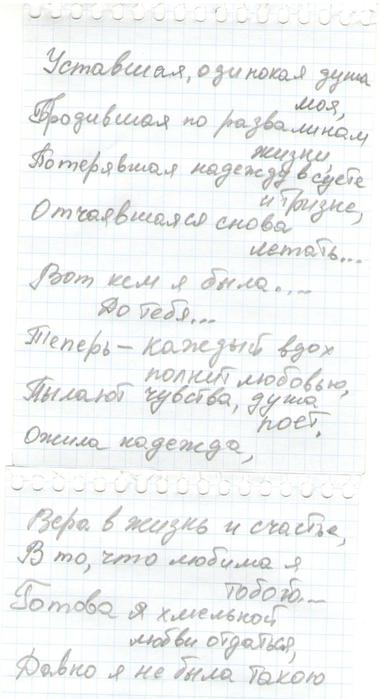 Уставшая, одинокая душа
моя,
Бродившая по развалинам
жизни,
Потерявшая надежду в суете
и тризне,
Отчаявшаяся снова
летать...
Вот кем я была....
До тебя...
Теперь – каждый вдох
полнит любовью,
Пылают чувства, душа
поёт,
Ожила надежда,
Вера в жизнь и счастье,
В то, что любима я
тобою...
Готова я хмельной
любви отдаться,
Давно я не была такою